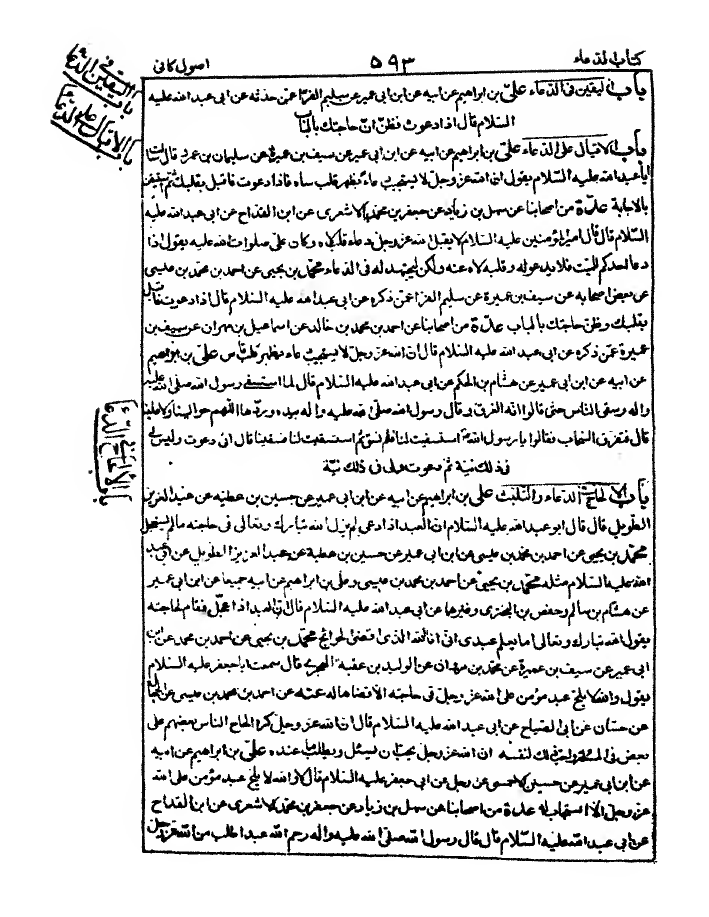 كتاب الدعاء
٥٩٣
اصول كافى
باب اليقين فى الدعاء
باب الاقبال على الدعاء
باب اليقين فى الدعاء على بن ابراهيم عن ابيه عن ابن ابى عمير عن سليم الفراء عمن حدثه عن ابى عبد الله عليه
السلام قال اذا دعوت فظن ان حاجتك بالباب
باب الاقبال على الدعاء على بن ابراهيم عن ابيه عن ابن ابى عمير عن سيف بن عميرة عن سليمان بن عمرو قال سمعت
ابا عبد الله عليه السلام يقول ان الله عز وجل لا يستجيب دعاء بظهر قلب ساه فاذا دعوت فاقبل بقلبك ثم استيقن
بالاجابة عدة من اصحابنا عن سهل بن زياد عن جعفر بن محمد الاشعرى عن ابن القداح عن ابى عبد الله عليه
السلام قال قال امير المؤمنين عليه السلام لا يقبل الله عز وجل دعاء قلب لاه وكان على صلوات الله عليه يقول اذا
دعا احدكم للميت فلا يدعو له و قلبه لاه عنه ولكن ليجتهد له فى الدعاء محمد بن يحيى عن احمد بن محمد بن عيسى
عن بعض اصحابه عن سيف بن عميرة عن سليم الفراء عمن ذكره عن ابى عبد الله عليه السلام قال اذا دعوت فاقبل
بقلبك وظن حاجتك بالباب عدة من اصحابنا عن احمد بن محمد بن خالد عن اسماعيل بن مهران عن سيف بن
عميرة عمن ذكره عن ابى عبد الله عليه السلام قال ان الله عز وجل لا يستجيب دعاء بظهر قلب قاس على بن ابراهيم
عن ابيه عن ابن ابى عمير عن هشام بن الحكم عن ابى عبد الله عليه السلام قال لما استسقى رسول الله صلى الله عليه
واله وسقى الناس حتى قالوا انه الغرق و قال رسول الله صلى الله عليه و اله بيده وردها اللهم حوالينا ولا علينا
قال فتفرق السحاب فقالوا يا رسول الله استسقيت لنا فلم نسق ثم استسقيت لنا فسقينا قال انى دعوت وليس لى
فى ذلك نية ثم دعوت ولى فى ذلك نية
باب الالحاح فى الدعاء
باب الالحاح فى الدعاء والتلبث على بن ابراهيم عن ابيه عن ابن ابى عمير عن حسين بن عطيه عن عبد العزيز
الطويل قال قال ابو عبد الله عليه السلام ان العبد اذا دعى لم يزل الله تبارك وتعالى فى حاجته ما لم يستعجل
محمد بن يحيى عن احمد بن محمد بن عيسى عن ابن ابى عمير عن حسين بن عطية عن عبد العزيز الطويل عن ابى عبد
الله عليه السلام مثله محمد بن يحيى عن احمد بن محمد بن عيسى وعلى بن ابراهيم عن ابيه جميعا عن ابن ابى عمير
عن هشام بن سالم وحفص بن البخترى وغيرهما عن ابى عبد الله عليه السلام قال ان العبد اذا عجل فقام لحاجته
يقول الله تبارك وتعالى اما يعلم عبدى انى انا الله الذى اقضى الحوائج محمد بن يحيى عن احمد بن محمد عن ابن
ابى عمير عن سيف بن عميرة عن محمد بن مروان عن الوليد بن عقبه الهجرى قال سمعت ابا جعفر عليه السلام
يقول والله لا يلح عبد مؤمن على الله عز وجل فى حاجته الا قضاها له عنه عن احمد بن محمد بن عيسى عن الحجال
عن حسان عن ابى الصباح عن ابى عبد الله عليه السلام قال ان الله عز وجل كره الحاح الناس بعضهم على
بعض فى المسئلة واحب ذلك لنفسه ان الله عز وجل يحب ان يسئل ويطلب ما عنده على بن ابراهيم عن ابيه
عن ابن ابى عمير عن حسين الاحمسى عن رجل عن ابى جعفر عليه السلام قال لا والله لا يلح عبد مؤمن على الله
عز وجل الا استجاب له عدة من اصحابنا عن سهل بن زياد عن جعفر بن محمد الاشعرى عن ابن القداح
عن ابى عبد الله عليه السلام قال قال رسول الله صلى الله عليه واله رحم الله عبدا طلب من الله عز وجل